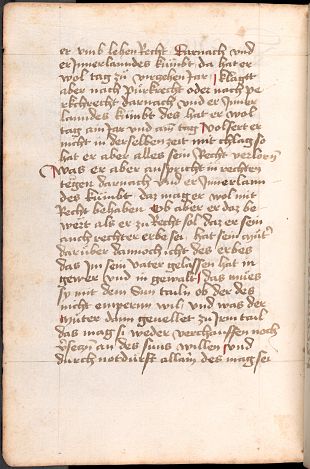 er vmb lehen Recht Darnach vnd
er Jnnerlanndes kumbt da hat er
wol tag zu vorgehen Jar klagtt
aber nach purkrecht oder nach pe
rkchrecht darnach vnd er Jnner
lanndes kumbt des hat er wol
tag ain Jar vnd ain tag volfert er
nicht in derselben zeit mit chlag so
hat er aber alles sein Recht verlorn
Was er aber anspricht in rechten
tegen darnach vnd er Jnnerlann
des kumbt daz mag er wol mit
Recht behaben Ob aber er daz be
wert als er zu Recht sol daz er sein
auch rechter erbe sei hat sein mueter
darüber dannoch icht des erbes
das Jm sein vater gelassen hat in
gewere vnd in gewalt das mües
sy mit dem Sun tailn ob der des
nicht enpernn wil vnd was der
müter dann geuellet zu Jrm tail
das mag si weder verchauffen noch
an des suns willen vnd
durch notdurft allain des mag sei